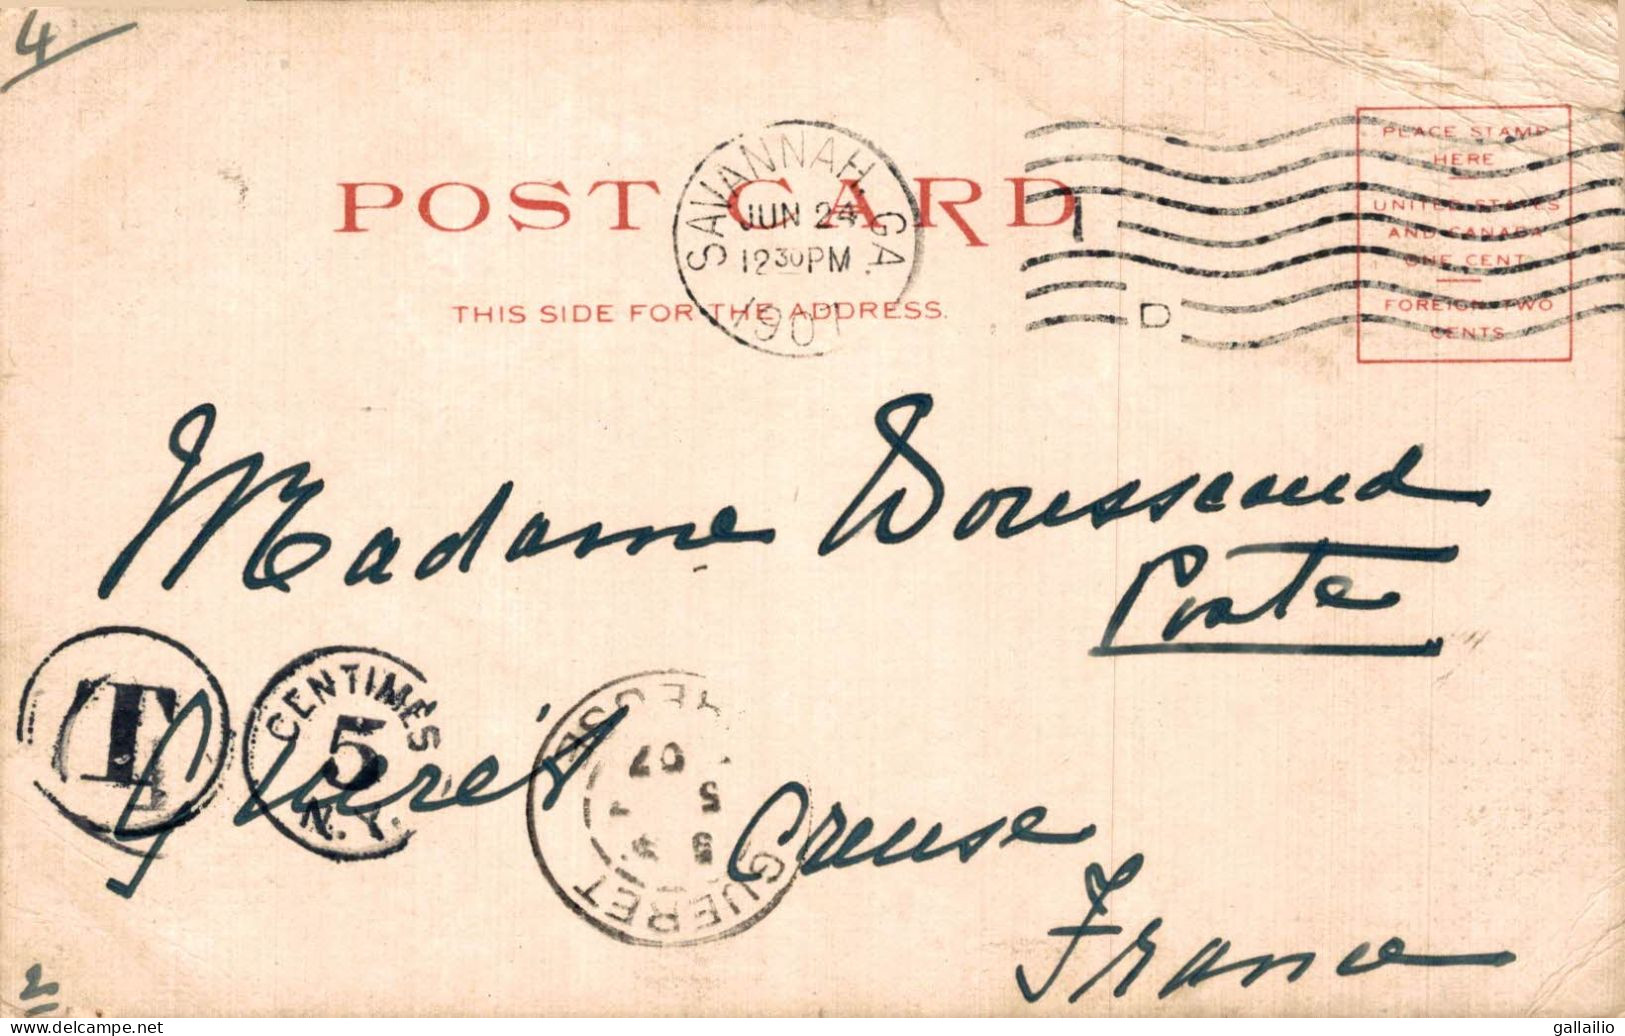 4
POST CARD
SAVANNAH, GA.
JUN 24
12 30 PM
1907
D
THIS SIDE FOR THE ADDRESS.
PLACE STAMP
HERE
UNITED STATES
AND CANADA
ONE CENT
FOREIGN TWO
CENTS
Madame Dousseaud
Poste
T
CENTIMES
5
N.Y.
Guéret
GUERET
07
5
Creuse
France
2
gallailio